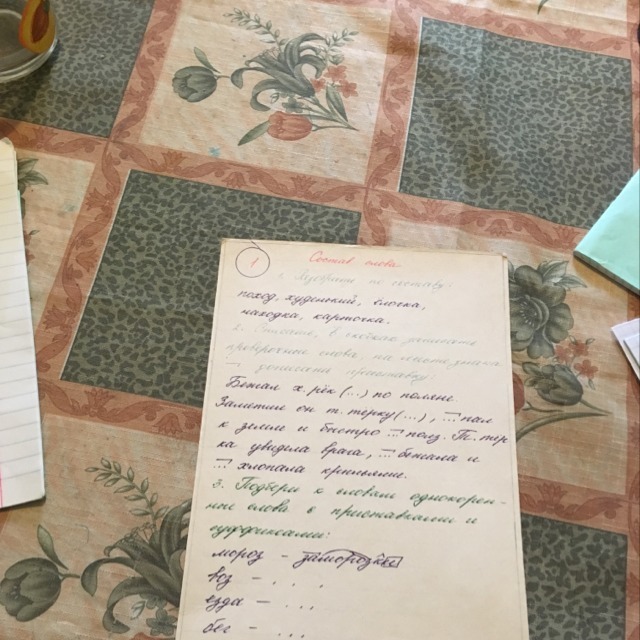 1
Состав слова.
1. Разбери по составу:
поход, худенький, ёлочка,
находка, карточка.
2. Спиши, в скобках запишите
проверочные слова, на месте знака
допиши приставку
Бежал х.рёк (...) по поляне.
Заметил он т.терку (...), ... пал
к земле и быстро ... полз. Т.тер
ка увидела врага, ... бежала и
... хлопала крыльями.
3. Подбери к словам однокорен-
ные слова с приставками и
суффиксами:
мороз - заморозки
воз - . . .
езда - . . .
бег - . . .